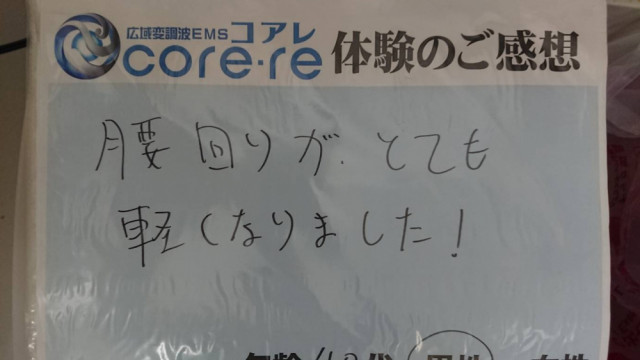 広域変調波EMS コアレ
core・re 体験のご感想
腰回りが、とても
軽くなりました!
年齢 40代 男性 女性